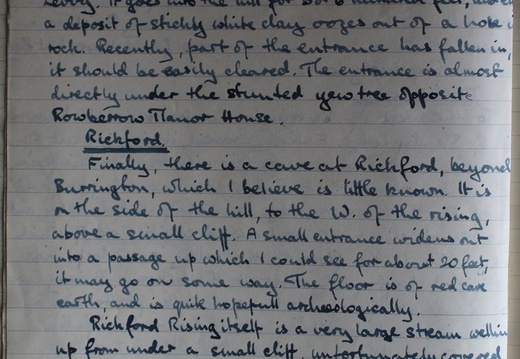 levey. It goes into the hill for
a deposit of stickly white clay oozes out of a hole in
rock. Recently, part of the entrance has fallen in,
it should be easily cleared. The entrance is almost
directly under the stunted yew tree opposite
Rowberrow Manor House.
Rickford.
Finally, there is a cave at Rickford, beyond
Burrington, which I believe is little known. It is
on the side of the hill, to the W. of the rising,
above a small cliff. A small entrance widens out
into a passage up which I could see for about 20 feet,
it may go on some way. The floor is of red cave
earth and is quite hopefull archeologically.
Rickford Rising itself is a very large stream wellin
up from under a small cliff, unfortunately covered